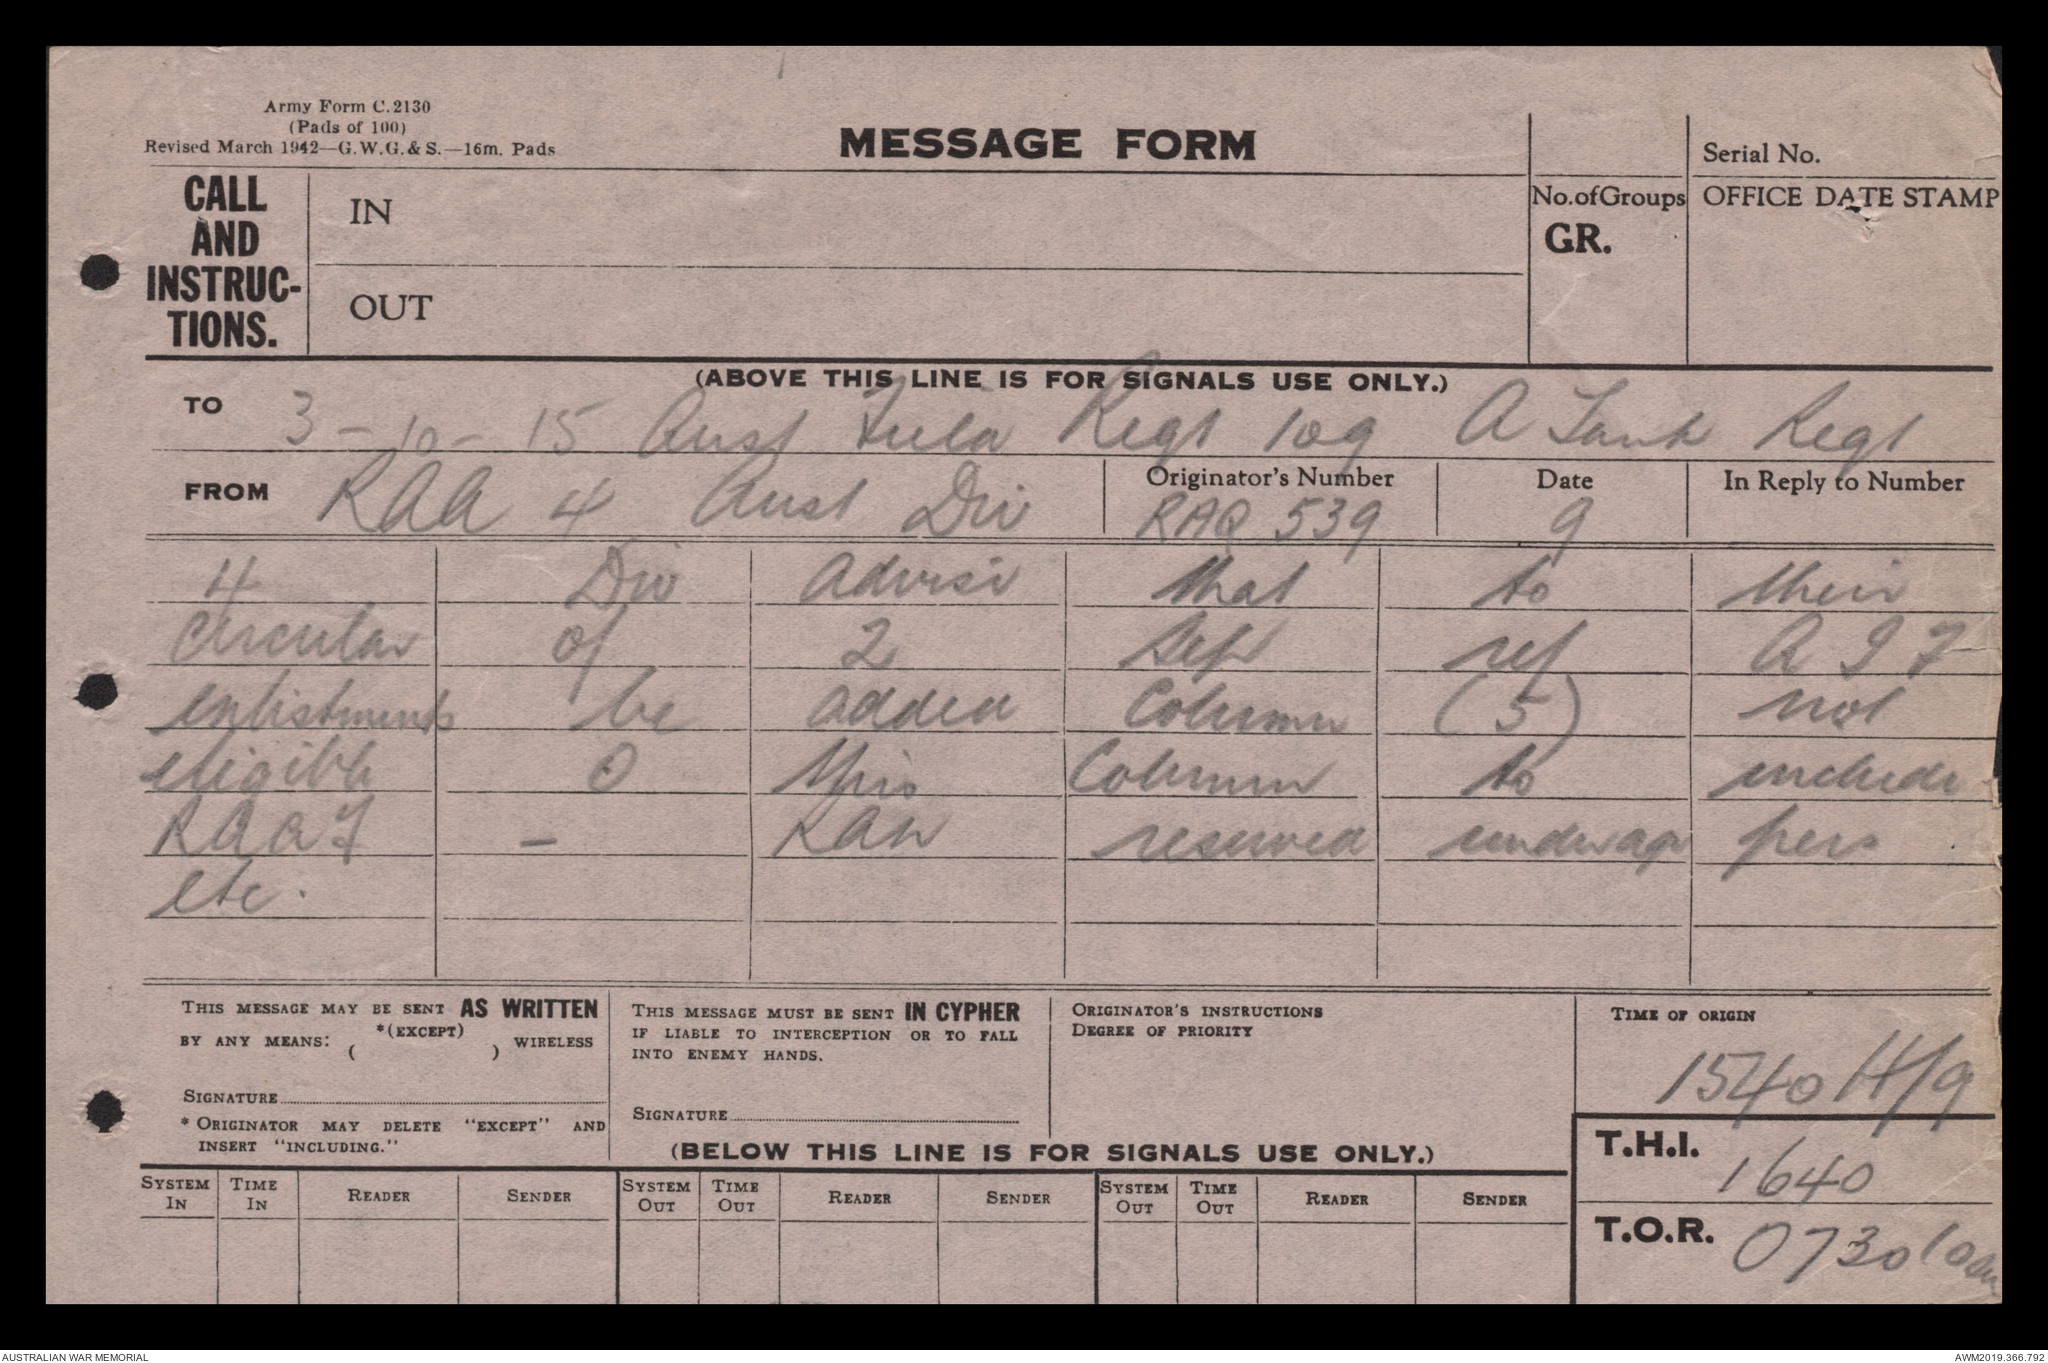 Army Form C.2130
(Pads of 100)
Revised March 1942—G.W.G.& S.—16m. Pads
MESSAGE FORM
Serial No.
CALL AND INSTRUC-TIONS.
IN
OUT
No. of Groups
GR.
OFFICE DATE STAMP
(ABOVE THIS LINE IS FOR SIGNALS USE ONLY.)
TO 3 - 10 - 15 Aust Field Regt 109 A Tank Regt
FROM RAA 4 Aust Div
Originator's Number RAQ 539
Date 9
In Reply to Number
4 Div advise that to their
circular of 2 Sep ref A I F
enlistments be added Column (5) not
eligible O This Column to include
RAAF - RAN reserved underage pers
etc.
THIS MESSAGE MAY BE SENT AS WRITTEN
BY ANY MEANS: *(EXCEPT) ( ) WIRELESS
SIGNATURE
* ORIGINATOR MAY DELETE "EXCEPT" AND
INSERT "INCLUDING."
THIS MESSAGE MUST BE SENT IN CYPHER
IF LIABLE TO INTERCEPTION OR TO FALL
INTO ENEMY HANDS.
SIGNATURE
ORIGINATOR'S INSTRUCTIONS
DEGREE OF PRIORITY
TIME OF ORIGIN
1540 H/9
(BELOW THIS LINE IS FOR SIGNALS USE ONLY.)
T.H.I. 1640
T.O.R. 0730
SYSTEM IN TIME IN READER SENDER SYSTEM OUT TIME OUT READER SENDER SYSTEM OUT TIME OUT READER SENDER
AUSTRALIAN WAR MEMORIAL
AWM2019.366.792